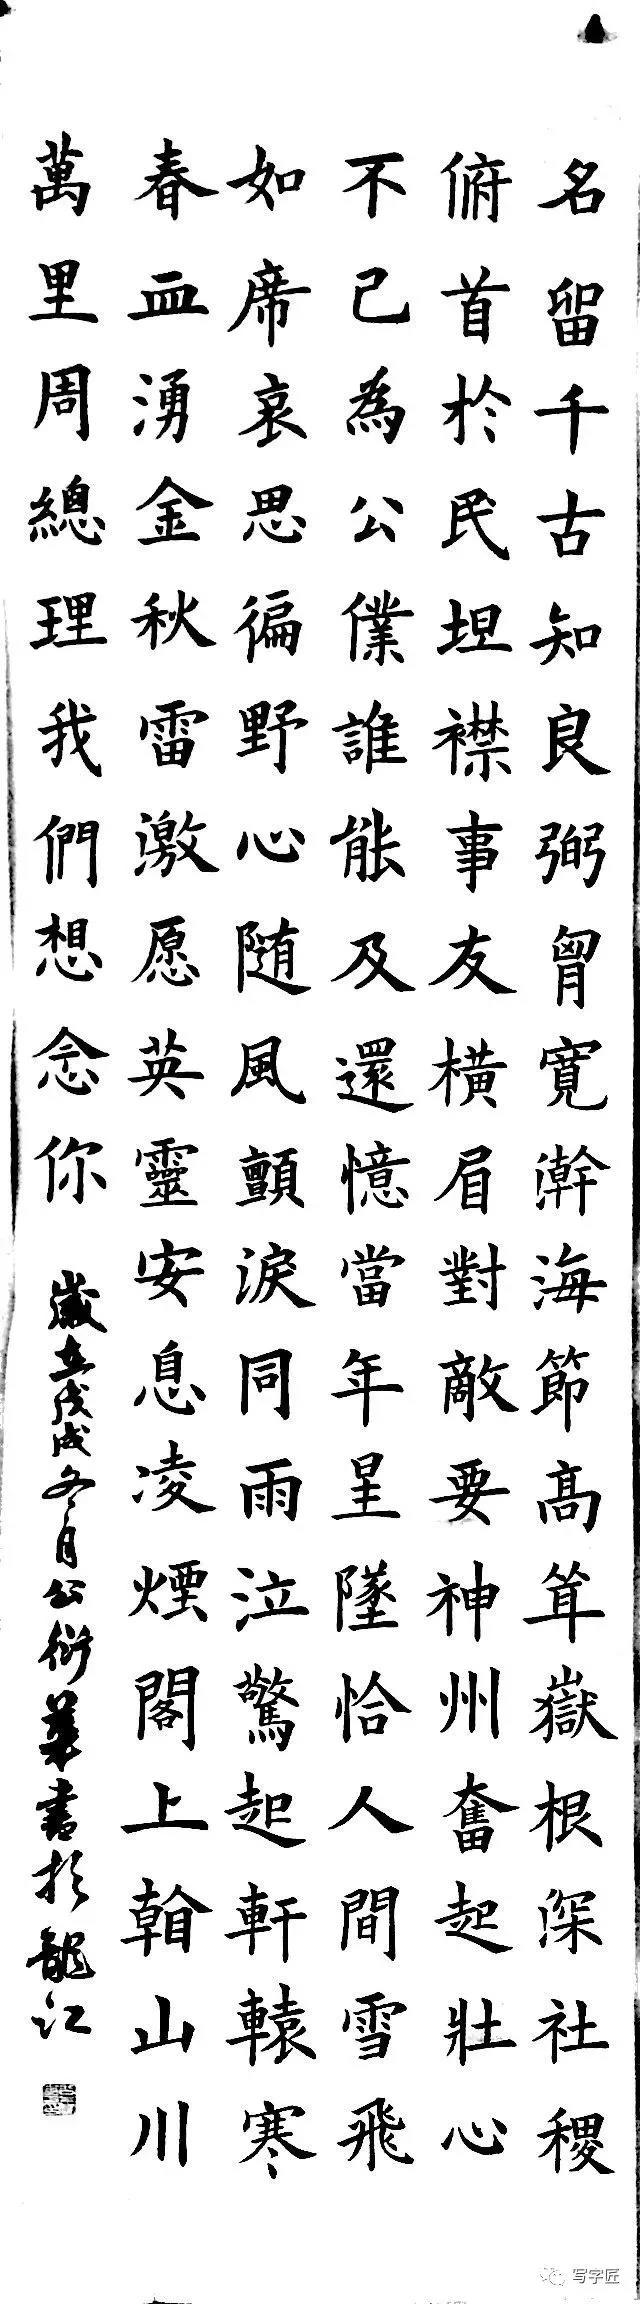 名留千古知良弼胷寬澣海節高聳嶽根深社稷
俯首於民坦襟事友橫眉對敵要神州奮起壯心
不已為公僕誰能及還憶當年星墜恰人間雪飛
如席哀思徧野心随風顫淚同雨泣驚起軒轅寒
春血湧金秋雷激愿英靈安息凌煙閣上翰山川
萬里周總理我們想念你
歲在戊戌冬月公衍華書於龍江
写字匠